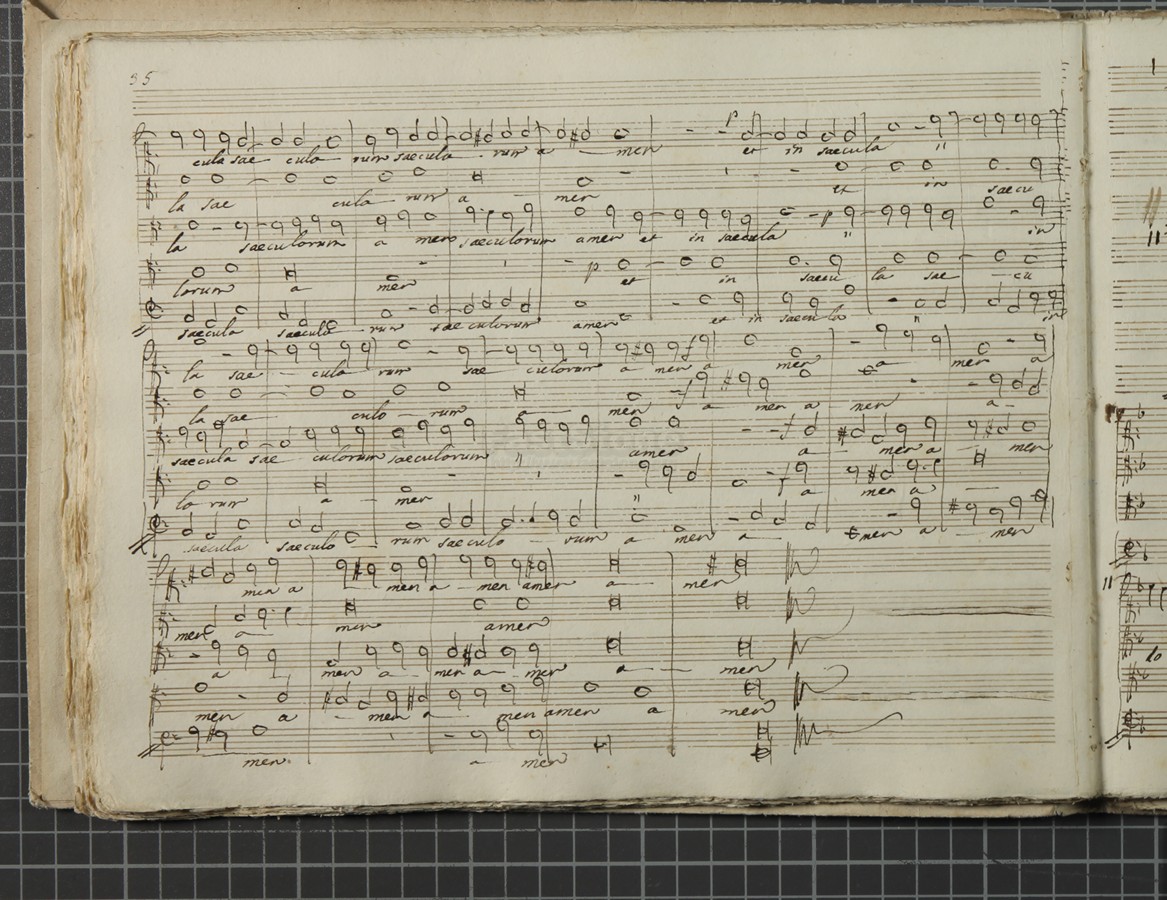 35
cula sae cula rum saecula rum a men et in saecula "
la sae cula rum a men et in saecu
la saeculorum a men saeculorum amen et in saecula " in
lorum a men et in saecu la sae cu
saecula saeculo rum saeculorum amen et in saecula " in
la sae cula rum sae culorum a men a men a men a
la sae culo rum a men a men a men a
saecula sae culorum saeculorum " amen a men a men
la rum a men " a men a
saecula saeculo rum saeculo rum a men a men a men
men a men a men amen a men
men a men amen
a men a men a men a men
men a men a men amen a men
men a men